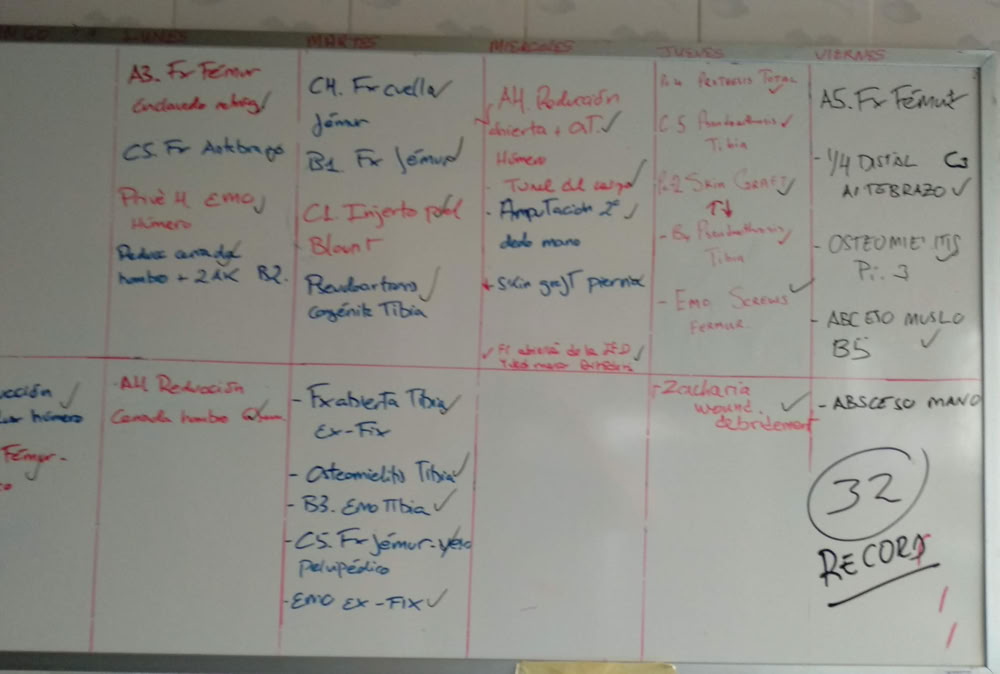 LUNES
MARTES
MIERCOLES
JUEVES
VIERNES
A3. Fx Fémur
Enclavado
C5. Fx Antebrazo
Privé 4 EMO
Húmero
Reducc cerrada
hombo + 2AK B2.
C4. Fx cuello
fémur
B1. Fx fémur
C1. Injerto
Blount
Pseudoartrosis
Congénita Tibia
A4. Reducción
abierta + OT.
Húmero
- Tunel del carpo
- Amputación 2º
dedo mano
Skin graft pierna
Fx abierta de la
Prothesis Total
C5 Pseudoarthrosis
Tibia
2 Skin Graft
- B4 Pseudoarthrosis
Tibia
- EMO SCREWS
FERMUR.
A5. Fx Fémur
- 1/4 DISTAL C3
ANTEBRAZO
- OSTEOMIELITIS
Pi. 3
- ABCESO MUSLO
B5
ucción
húmero
Fémur-
- A4 Reducción
Cerrada hombo
- Fx abierta Tibia
EX-FIX
- Osteomielitis Tibia
- B3. EMO Tibia
- C5. Fx fémur-yeso
pelvipédico
- EMO EX-FIX
- Zacharia
wound
debridement
- ABSCESO MANO
32
RECORD